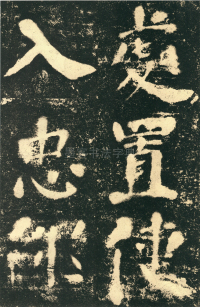 處置使
入忠能